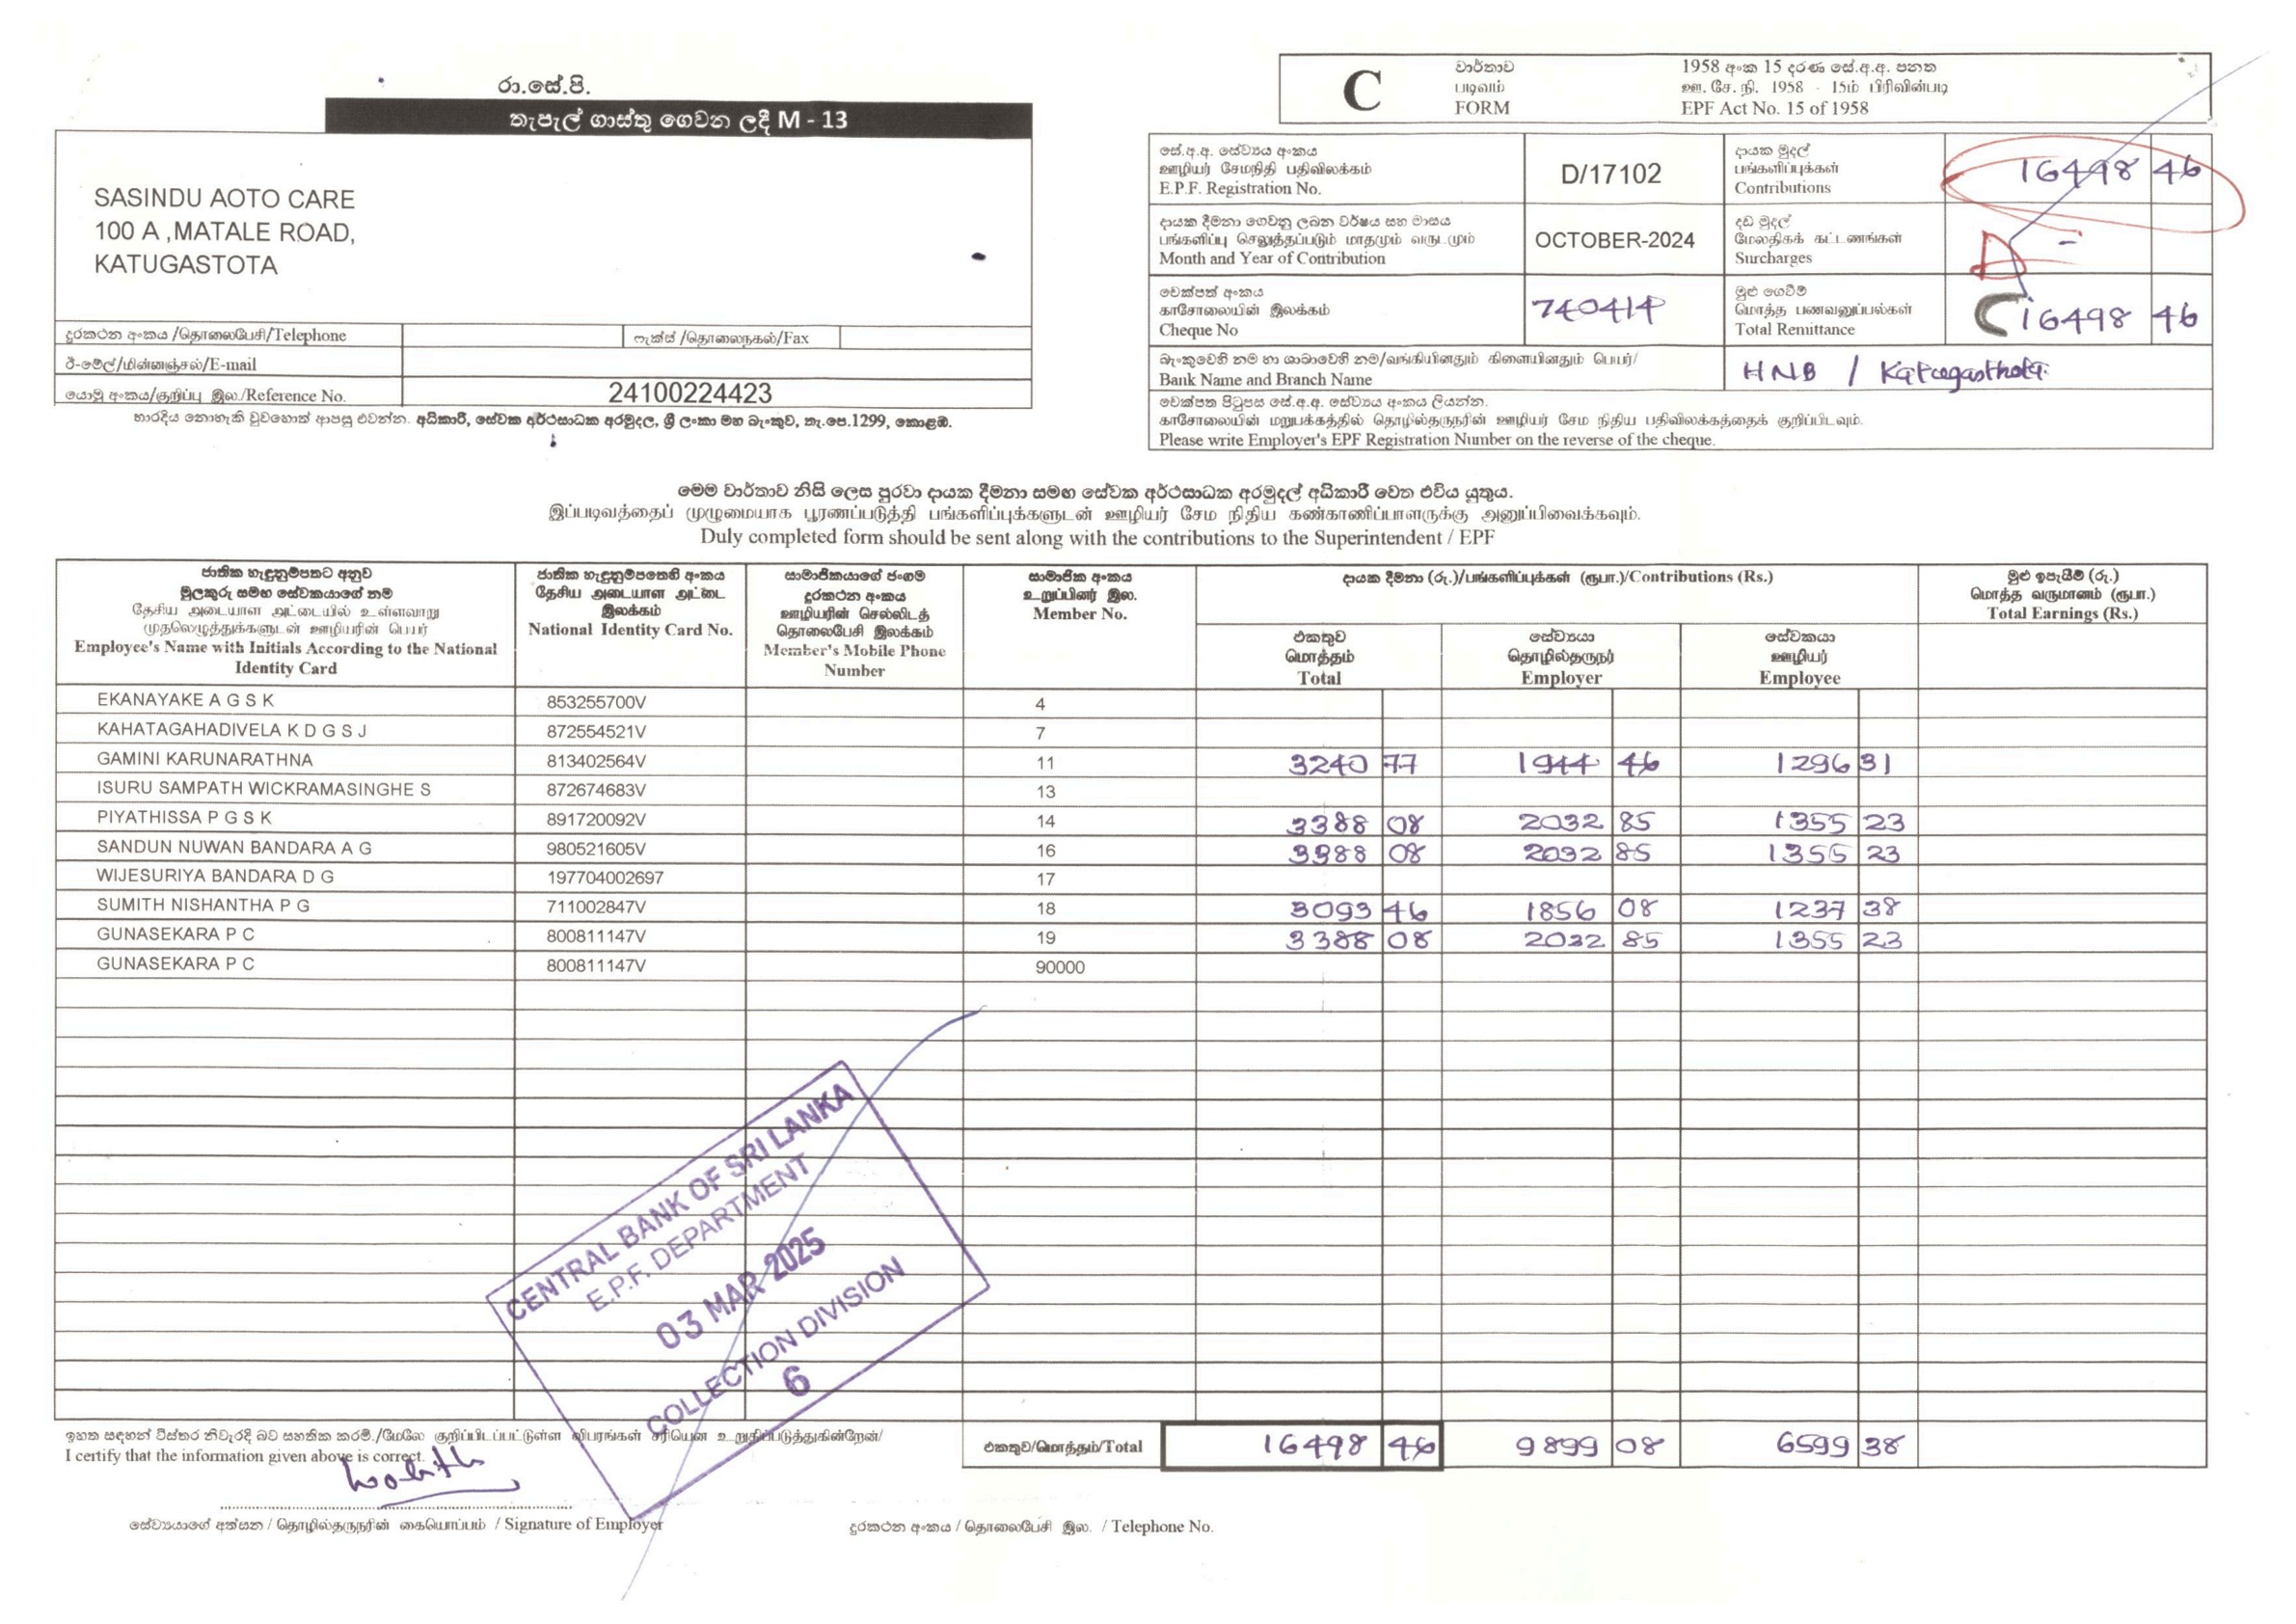 රා.සේ.පි.
තැපැල් ගාස්තු ගෙවන ලදී M - 13
SASINDU AOTO CARE
100 A ,MATALE ROAD,
KATUGASTOTA
දුරකථන අංකය /தொலைபேசி/Telephone
ෆැක්ස් /தொலைநகல்/Fax
ඊ-මේල්/மின்னஞ்சல்/E-mail
යොමු අංකය/குறிப்பு இல./Reference No. 24100224423
භාරදිය නොහැකි වුවහොත් ආපසු එවන්න. අධිකාරී, සේවක අර්ථසාධක අරමුදල, ශ්‍රී ලංකා මහ බැංකුව, තැ.පෙ.1299, කොළඹ.
C
වාර්තාව
படிவம்
FORM
1958 අංක 15 දරණ සේ.අ.අ. පනත
ஊ. சே. நி. 1958 - 15ம் பிரிவின்படி
EPF Act No. 15 of 1958
සේ.අ.අ. සේව්‍යය අංකය
ஊழியர் சேமநிதி பதிவிலக்கம்
E.P.F. Registration No.
D/17102
දායක මුදල්
பங்களிப்புக்கள்
Contributions
16498 46
දායක දීමනා ගෙවනු ලබන වර්ෂය සහ මාසය
பங்களிப்பு செலுத்தப்படும் மாதமும் வருடமும்
Month and Year of Contribution
OCTOBER-2024
දඩ මුදල්
மேலதிகக் கட்டணங்கள்
Surcharges
-
චෙක්පත් අංකය
காசோலையின் இலக்கம்
Cheque No
740414
මුළු ගෙවීම්
மொத்த பணவனுப்பல்கள்
Total Remittance
16498 46
බැංකුවෙහි නම හා ශාඛාවෙහි නම/வங்கியினதும் கிளையினதும் பெயர்/
Bank Name and Branch Name
HNB / Katugasthota
චෙක්පත පිටුපස සේ.අ.අ. සේව්‍යය අංකය ලියන්න.
காசோலையின் மறுபக்கத்தில் தொழில்தருநரின் ஊழியர் சேம நிதிய பதிவிலக்கத்தைக் குறிப்பிடவும்.
Please write Employer's EPF Registration Number on the reverse of the cheque.
මෙම වාර්තාව නිසි ලෙස පුරවා දායක දීමනා සමඟ සේවක අර්ථසාධක අරමුදල් අධිකාරී වෙත එවිය යුතුය.
இப்படிவத்தைப் முழுமையாக பூரணப்படுத்தி பங்களிப்புக்களுடன் ஊழியர் சேம நிதிய கண்காணிப்பாளருக்கு அனுப்பிவைக்கவும்.
Duly completed form should be sent along with the contributions to the Superintendent / EPF
ජාතික හැඳුනුම්පතට අනුව
මුලකුරු සමඟ සේවකයාගේ නම
தேசிய அடையாள அட்டையில் உள்ளவாறு
முதலெழுத்துக்களுடன் ஊழியரின் பெயர்
Employee's Name with Initials According to the National
Identity Card
ජාතික හැඳුනුම්පතෙහි අංකය
தேசிய அடையாள அட்டை
இலக்கம்
National Identity Card No.
සාමාජිකයාගේ ජංගම
දුරකථන අංකය
ஊழியரின் செல்லிடத்
தொலைபேசி இலக்கம்
Member's Mobile Phone
Number
සාමාජික අංකය
உறுப்பினர் இல.
Member No.
දායක දීමනා (රු.)/பங்களிப்புக்கள் (ரூபா.)/Contributions (Rs.)
එකතුව
மொத்தம்
Total
සේව්‍යයා
தொழில்தருநர்
Employer
සේවකයා
ஊழியர்
Employee
මුළු ඉපැයීම් (රු.)
மொத்த வருமானம் (ரூபா.)
Total Earnings (Rs.)
EKANAYAKE A G S K 853255700V 4
KAHATAGAHADIVELA K D G S J 872554521V 7
GAMINI KARUNARATHNA 813402564V 11 3240 77 1944 46 1296 31
ISURU SAMPATH WICKRAMASINGHE S 872674683V 13
PIYATHISSA P G S K 891720092V 14 3388 08 2032 85 1355 23
SANDUN NUWAN BANDARA A G 980521605V 16 3388 08 2032 85 1355 23
WIJESURIYA BANDARA D G 197704002697 17
SUMITH NISHANTHA P G 711002847V 18 3093 46 1856 08 1237 38
GUNASEKARA P C 800811147V 19 3388 08 2032 85 1355 23
GUNASEKARA P C 800811147V 90000
CENTRAL BANK OF SRI LANKA
E.P.F. DEPARTMENT
03 MAR 2025
COLLECTION DIVISION
6
ඉහත සඳහන් විස්තර නිවැරදි බව සහතික කරමි./மேலே குறிப்பிடப்பட்டுள்ள விபரங்கள் சரியென உறுதிப்படுத்துகின்றேன்/
I certify that the information given above is correct.
එකතුව/மொத்தம்/Total 16498 46 9899 08 6599 38
සේව්‍යයාගේ අත්සන / தொழில்தருநரின் கையொப்பம் / Signature of Employer
දුරකථන අංකය / தொலைபேசி இல. / Telephone No.